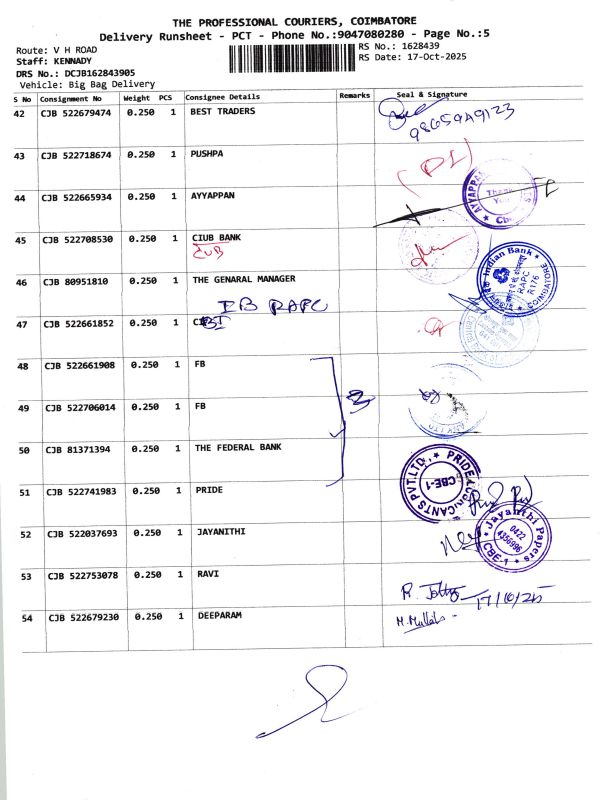 THE PROFESSIONAL COURIERS, COIMBATORE
Delivery Runsheet - PCT - Phone No.:9047080280 - Page No.:5
Route: V H ROAD
RS No.: 1628439
Staff: KENNADY
RS Date: 17-Oct-2025
DRS No.: DCJB162843905
Vehicle: Big Bag Delivery
S No Consignment No Weight PCS Consignee Details Remarks Seal & Signature
42 CJB 522679474 0.250 1 BEST TRADERS
9865949123
43 CJB 522718674 0.250 1 PUSHPA
44 CJB 522665934 0.250 1 AYYAPPAN
AYYAPPAN
Thank You
45 CJB 522708530 0.250 1 CIUB BANK
CUB
46 CJB 80951810 0.250 1 THE GENARAL MANAGER
IB RAPC
Indian Bank
RAPC
R176
COIMBATORE
47 CJB 522661852 0.250 1
48 CJB 522661908 0.250 1 FB
49 CJB 522706014 0.250 1 FB
3
50 CJB 81371394 0.250 1 THE FEDERAL BANK
51 CJB 522741983 0.250 1 PRIDE
PRIDE
CBE-1
52 CJB 522037693 0.250 1 JAYANITHI
Jayanthi Papers
0422
4356996
CBE-1
53 CJB 522753078 0.250 1 RAVI
17/10/25
54 CJB 522679230 0.250 1 DEEPARAM